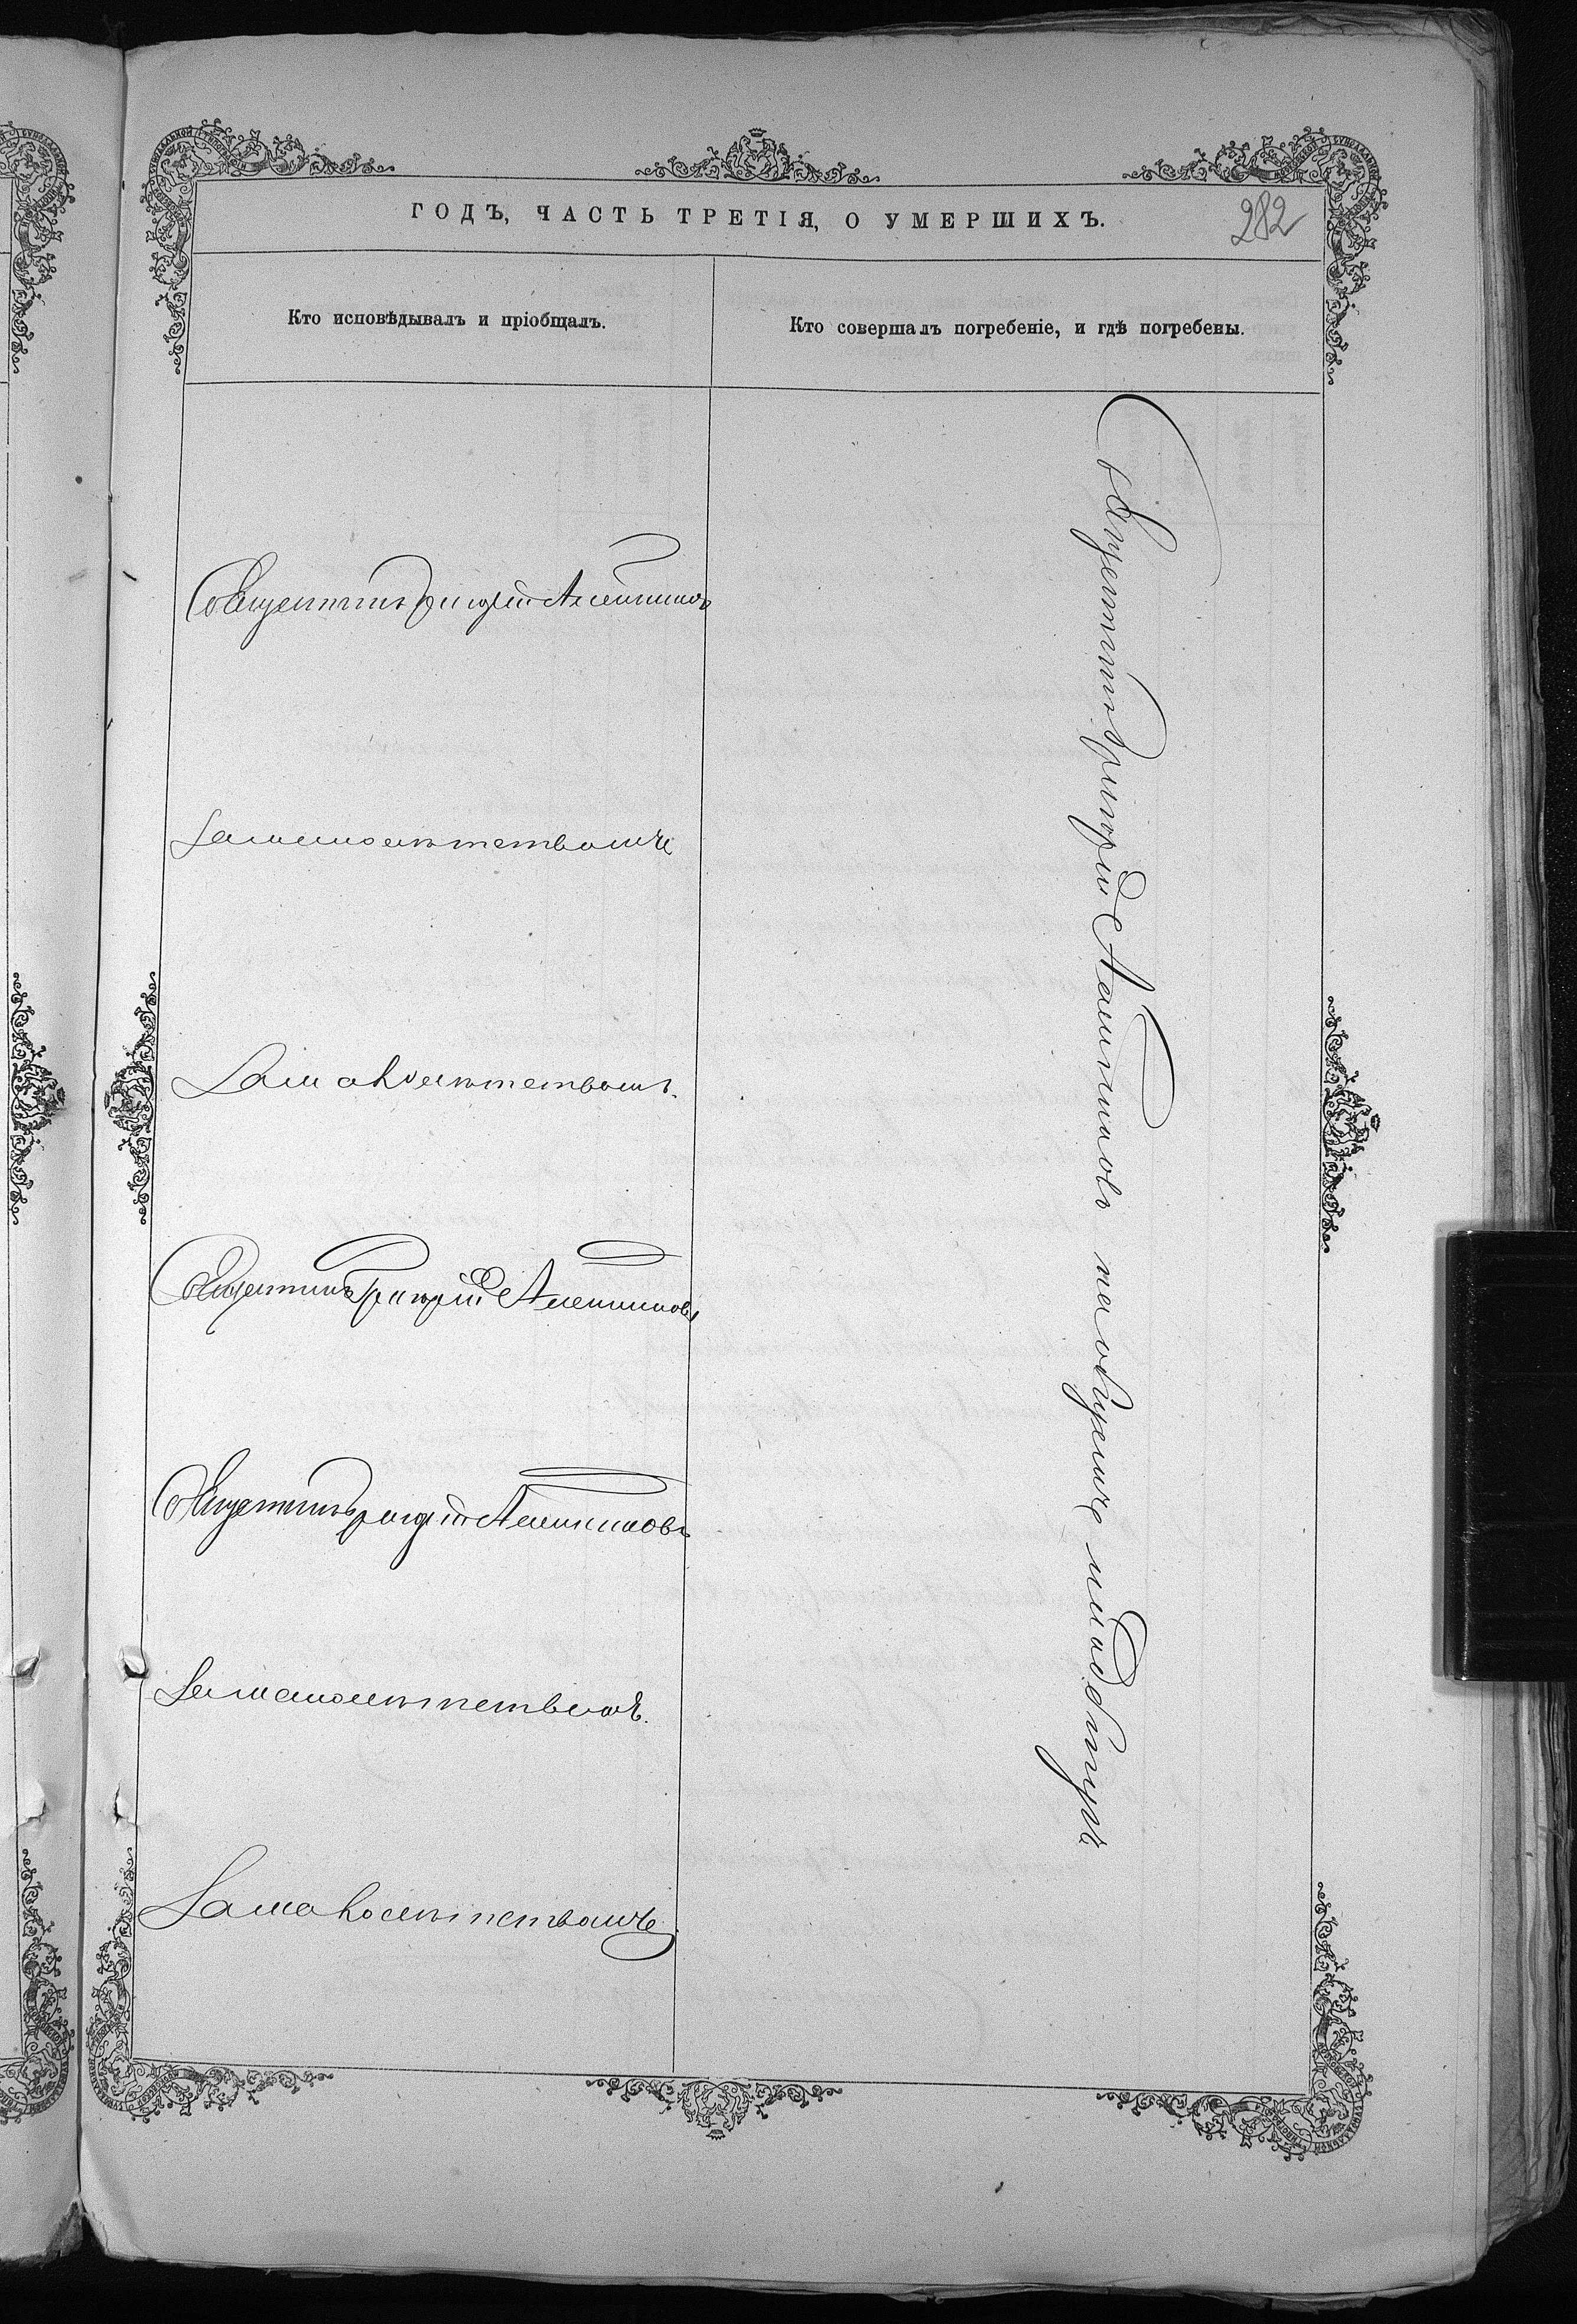 ГОДЪ, ЧАСТЬ ТРЕТІЯ, О УМЕРШИХЪ.
282
Кто исповѣдывалъ и пріобщалъ.
Кто совершалъ погребеніе, и гдѣ погребены.
Священникъ Григорій
За малолѣтствомъ
За малолѣтствомъ.
Священникъ Григорій
Священникъ Григорій
За малолѣтствомъ.
За малолѣтствомъ
Священникъ Григорій на общемъ кладбищѣ